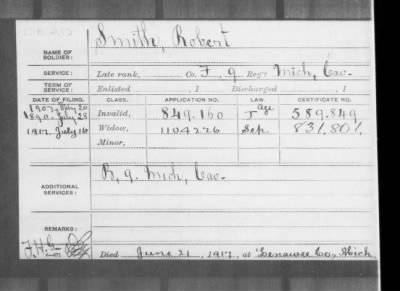 DEAD
NAME OF SOLDIER: Smith, Robert
SERVICE: Late rank, Co. F, 9 Reg't Mich, Cav.
TERM OF SERVICE: Enlisted , 1 Discharged , 1
DATE OF FILING. CLASS. APPLICATION NO. LAW. CERTIFICATE NO.
1907, July 20
1890, July 28 Invalid, 849.160 J age 589.849
1917, July 16 Widow, 1104226 Sep. 831.801
Minor,
ADDITIONAL SERVICES: B, 9 Mich, Cav.
REMARKS:
Died June 21, 1917, at Lenawee Co, Mich